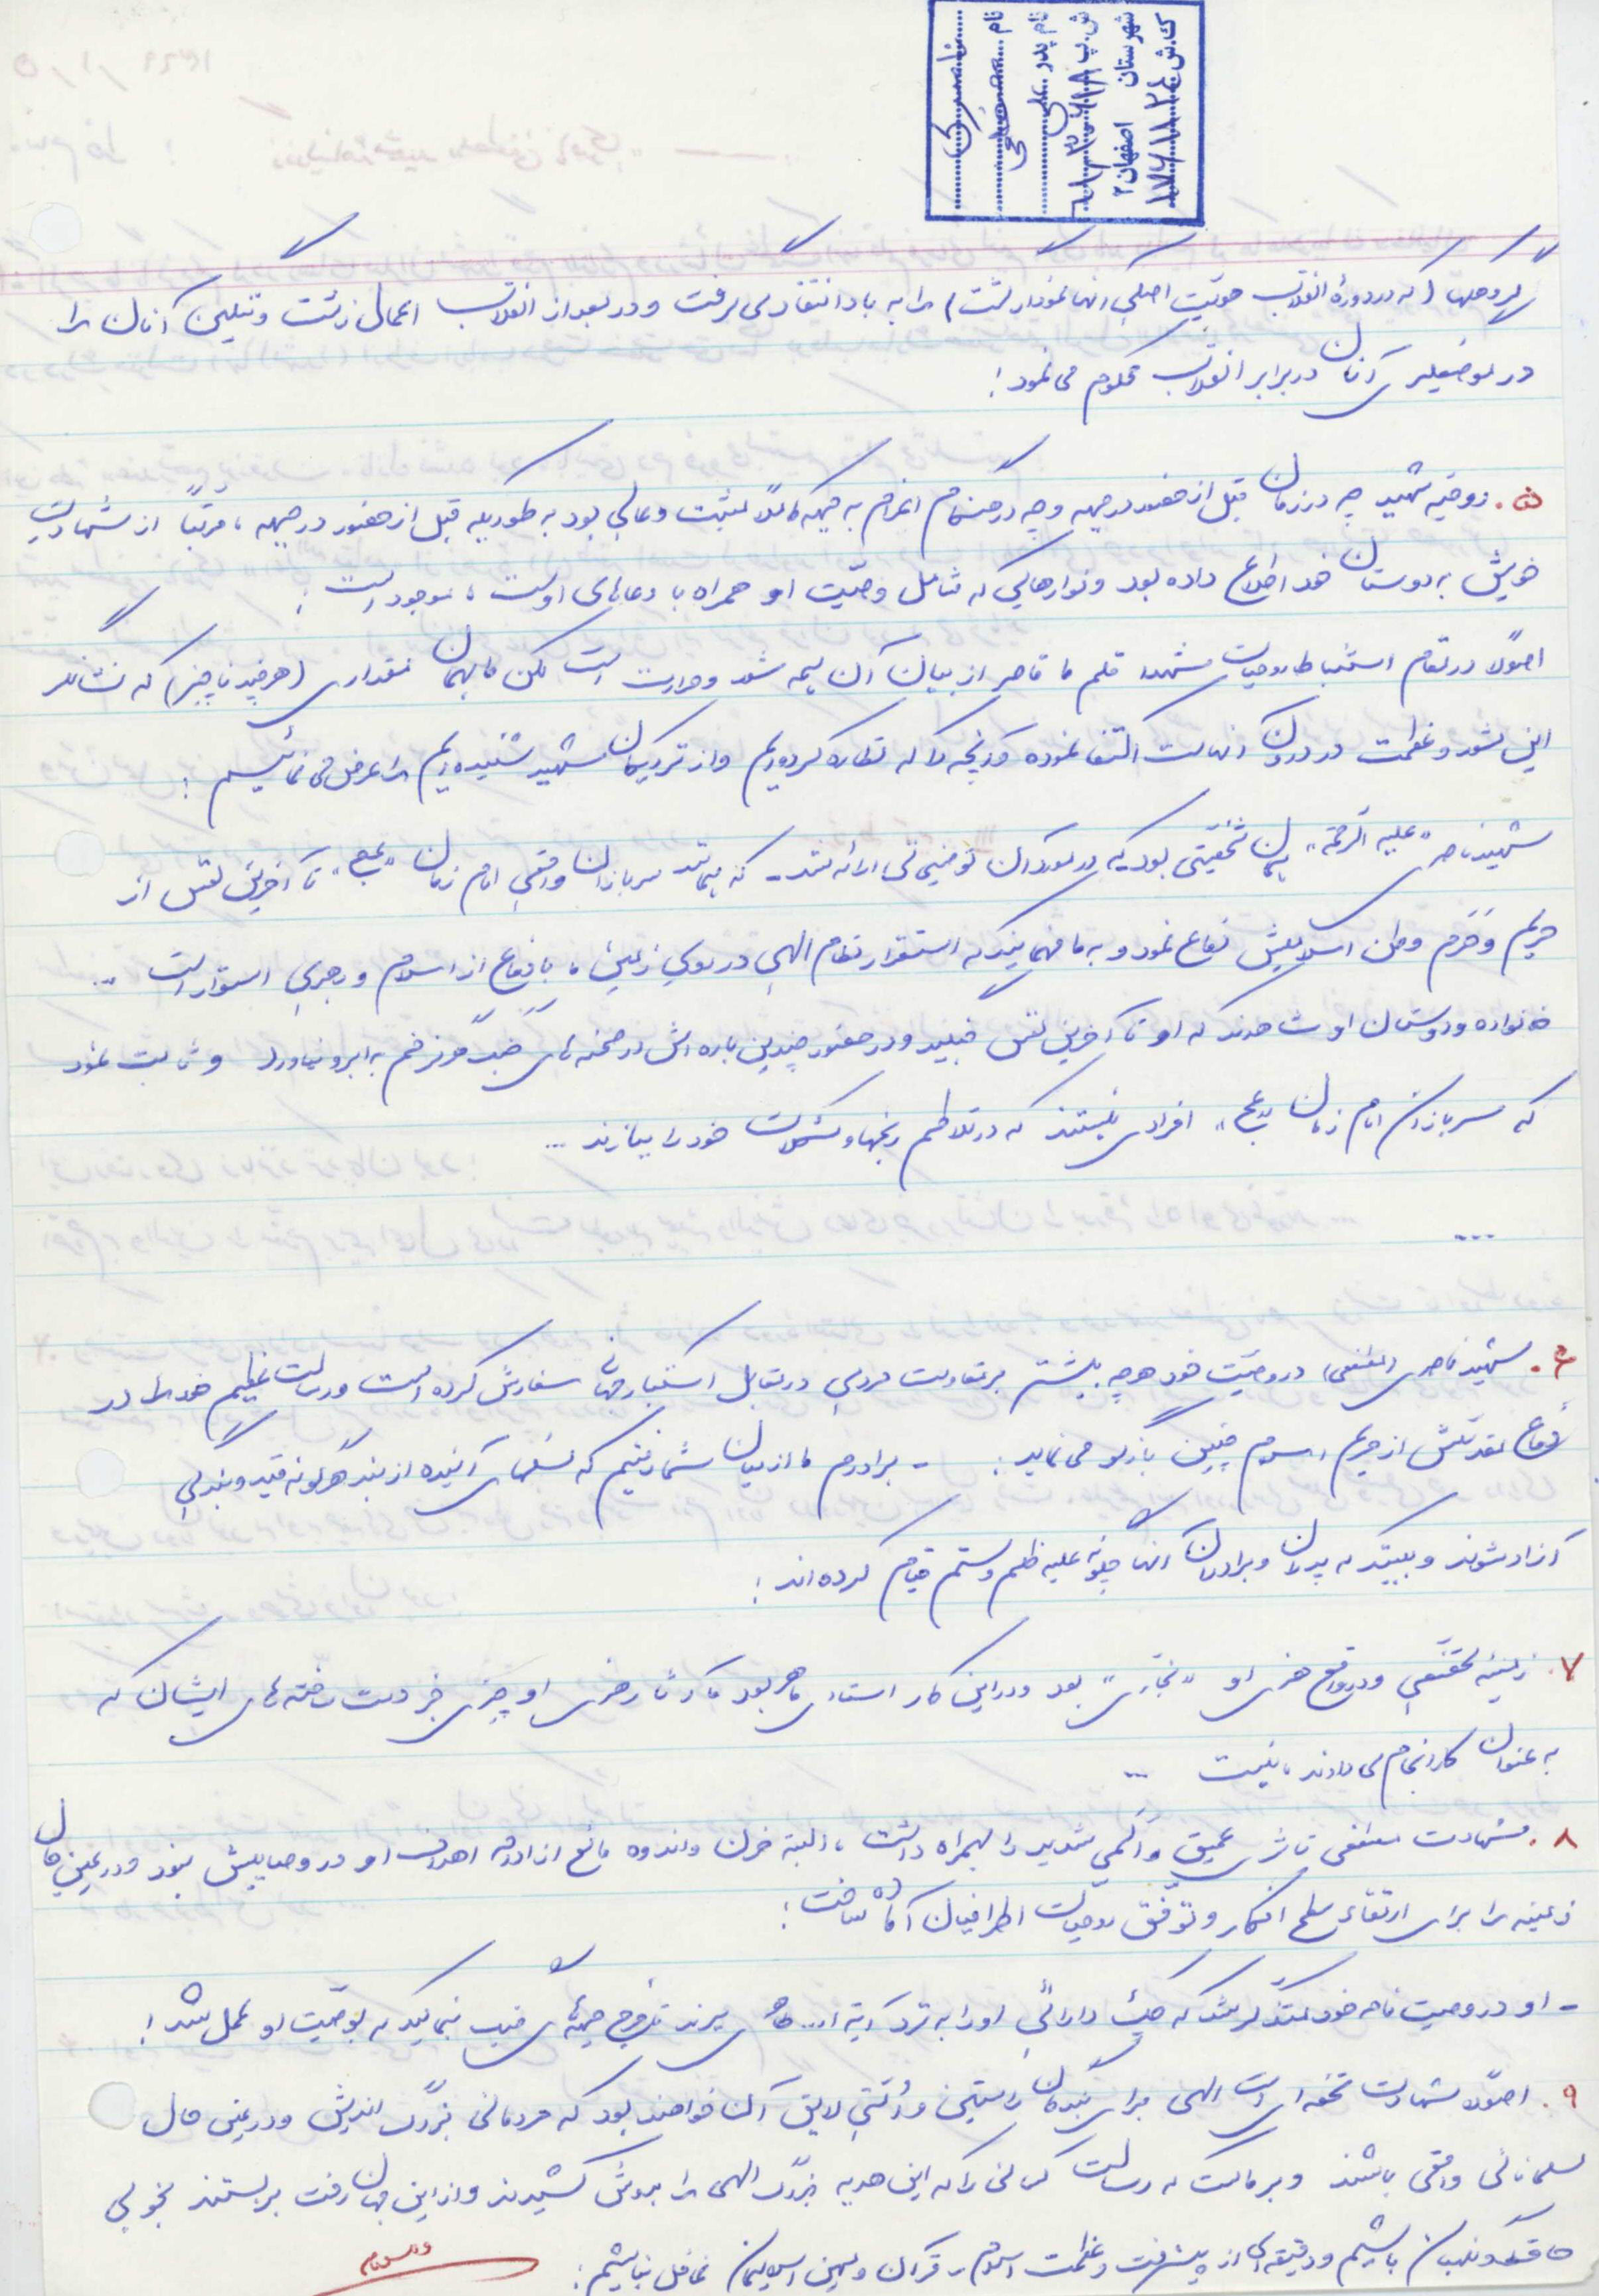 ک.ش ۱۷۷۱۱۱۲۴
شهرستان اصفهان ۲
نام پدر علی
نام مصطفی
ناصری
گروهها (که در دورهٔ انقلاب هویّت اصلی آنها نمودار گشت) را به باد انتقاد می گرفت و در بعد از انقلاب اعمال زشت و ننگین آنان را
در موضعگیری آنان در برابر انقلاب محکوم می نمود؛
۵. روحیّه شهید چه در زمان قبل از حضور در جبهه و چه در هنگام اعزام به جبهه کاملاً مثبت و عالی بود به طوریکه قبل از حضور در جبهه، مرتباً از شهادت
خویش به دوستان خود اطلاع داده بود و نوارهایی که شامل وصیّت او همراه با دعاهای اوست، موجود است؛
اصولاً در مقام استنباط روحیات شهدا قلم ما قاصر از بیان آن همه شور و حرارت است لکن ما بهمان مقداری (هر چند ناچیز) که نشانگر
این شور و عظمت در درون آنهاست اکتفا نموده و آنچه را که نظاره کرده ایم و از نزدیکان شهید شنیده ایم را عرض می نمائیم:
شهید ناصری "علیه الرّحمة" همان شخصیّتی بود که در مورد آن توضیحاتی ارائه شد - که همانند سربازان واقعی امام زمان "عج" تا آخرین نفس از
حریم و حَرَم وطن اسلامیش دفاع نمود و به ما فهمانید که استقرار نظام الهی در روی زمین، با دفاع از اسلام و رهبری استوار است ...
خانواده و دوستان او شاهدند که او تا آخرین نفس جنگید و در حضور چندین باره اش در صحنه های جنگ هرگز خم به ابرو نیاورد و ثابت نمود
که سربازان امام زمان "عج" افرادی نیستند که در تلاطم رنجها و مشکلات خود را ببازند ...
...
۶. شهید ناصری (مصطفی) در وصیّت خود هر چه بیشتر بر مقاومت مردمی در مقابل استکبار جهانی سفارش کرده است و رسالت عظیم خود را در
دفاع مقدسش از حریم اسلام چنین بازگو می نماید: - برادرم ما از میان شما رفتیم که نسلهای آینده از بند هرگونه قید و بندگی
آزاد شوند و ببینند که پدران و برادران آنها چگونه علیه ظلم و ستم قیام کرده اند؛
۷. زمینهٔ تخصّصی و در واقع هنری او "نجّاری" بود و در این کار استادی ماهر بود و آثار هنری او چیزی جز دست ساخته های ایشان که
به عنوان کار انجام می دادند، نیست ...
۸. شهادت مصطفی تأثری عمیق و اَلَمی شدید را بهمراه داشت، البته حزن و اندوه مانع از ادامهٔ اهداف او در وصایایش نبود و در عین حال
زمینه را برای ارتقاء سطح افکار و توفّق روحیات اطرافیان آماده ساخت؛
- او در وصیت نامه خود متذکر شد که دارائی او را به نزد آیة ا... ببرند خرج جبهه های جنگ نمایند که به وصیّت او عمل شد؛
۹. اصولاً شهادت تحفه ای است الهی برای بندگان راستین و کسانی لایق آن خواهند بود که مردمانی بزرگ اندیش و در عین حال
مسلمانانی واقعی باشند و بر ماست که رسالت کسانی را که این هدیه بزرگ الهی را بدوش کشیدند و از این جهان رخت بر بستند بخوبی
نگهبان باشیم و دقیقه ای از پیشرفت و عظمت اسلام و قرآن و میهن اسلامیمان غافل نباشیم؛
والسلام